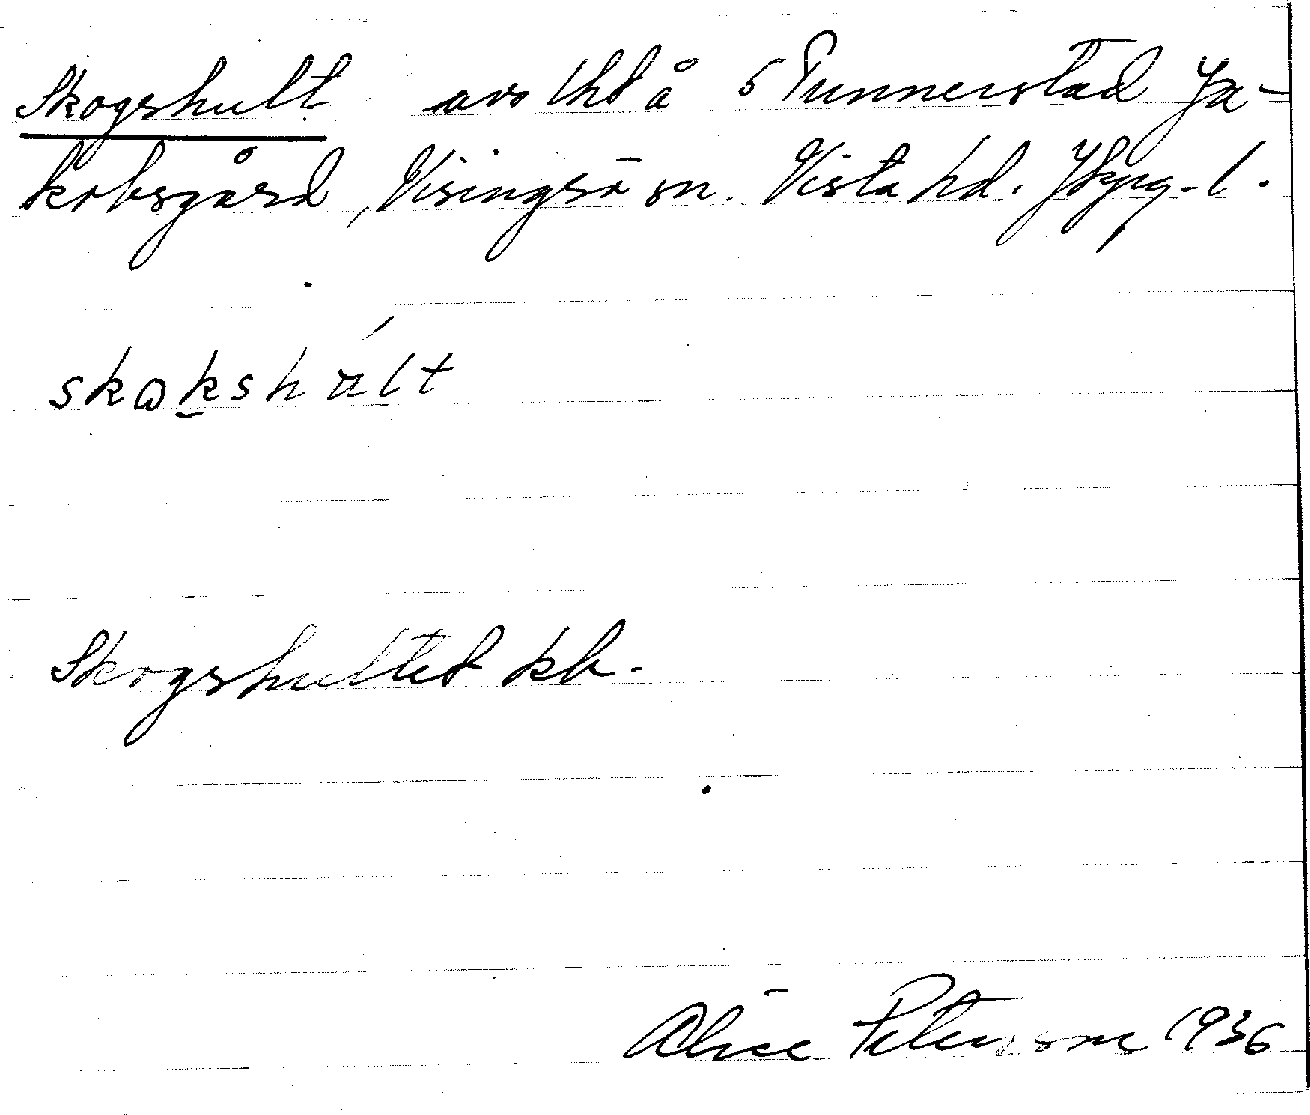 Skogshult avs lht å 5 Tunnerstad Ja-
kobsgård, Visingsö sn. Vista hd. Jkpg. l.
skɷkshált
Skogshultet kb.
Alice Petersson 1936